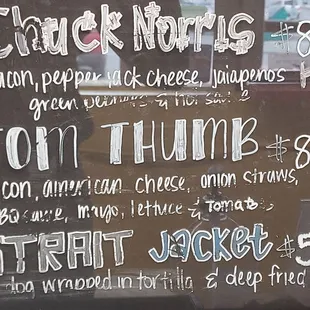 Chuck Norris $8
acon, pepper jack cheese, jalapenos
green peppers & hot sauce
TOM THUMB $8
con, american cheese, onion straws,
BQ sauce, mayo, lettuce & tomato
TRAIT JACKET $5
dog wrapped in tortilla & deep fried